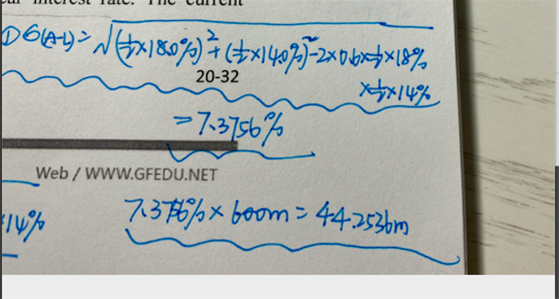 ear interest rate. The current
① σ(A-L) = √(½×18.0%)² + (½×14.0%)² - 2×0.6×½×18%
×½×14%
20-32
= 7.3756%
Web / WWW.GFEDU.NET
×14%
7.3756% × 600m = 44.2536m